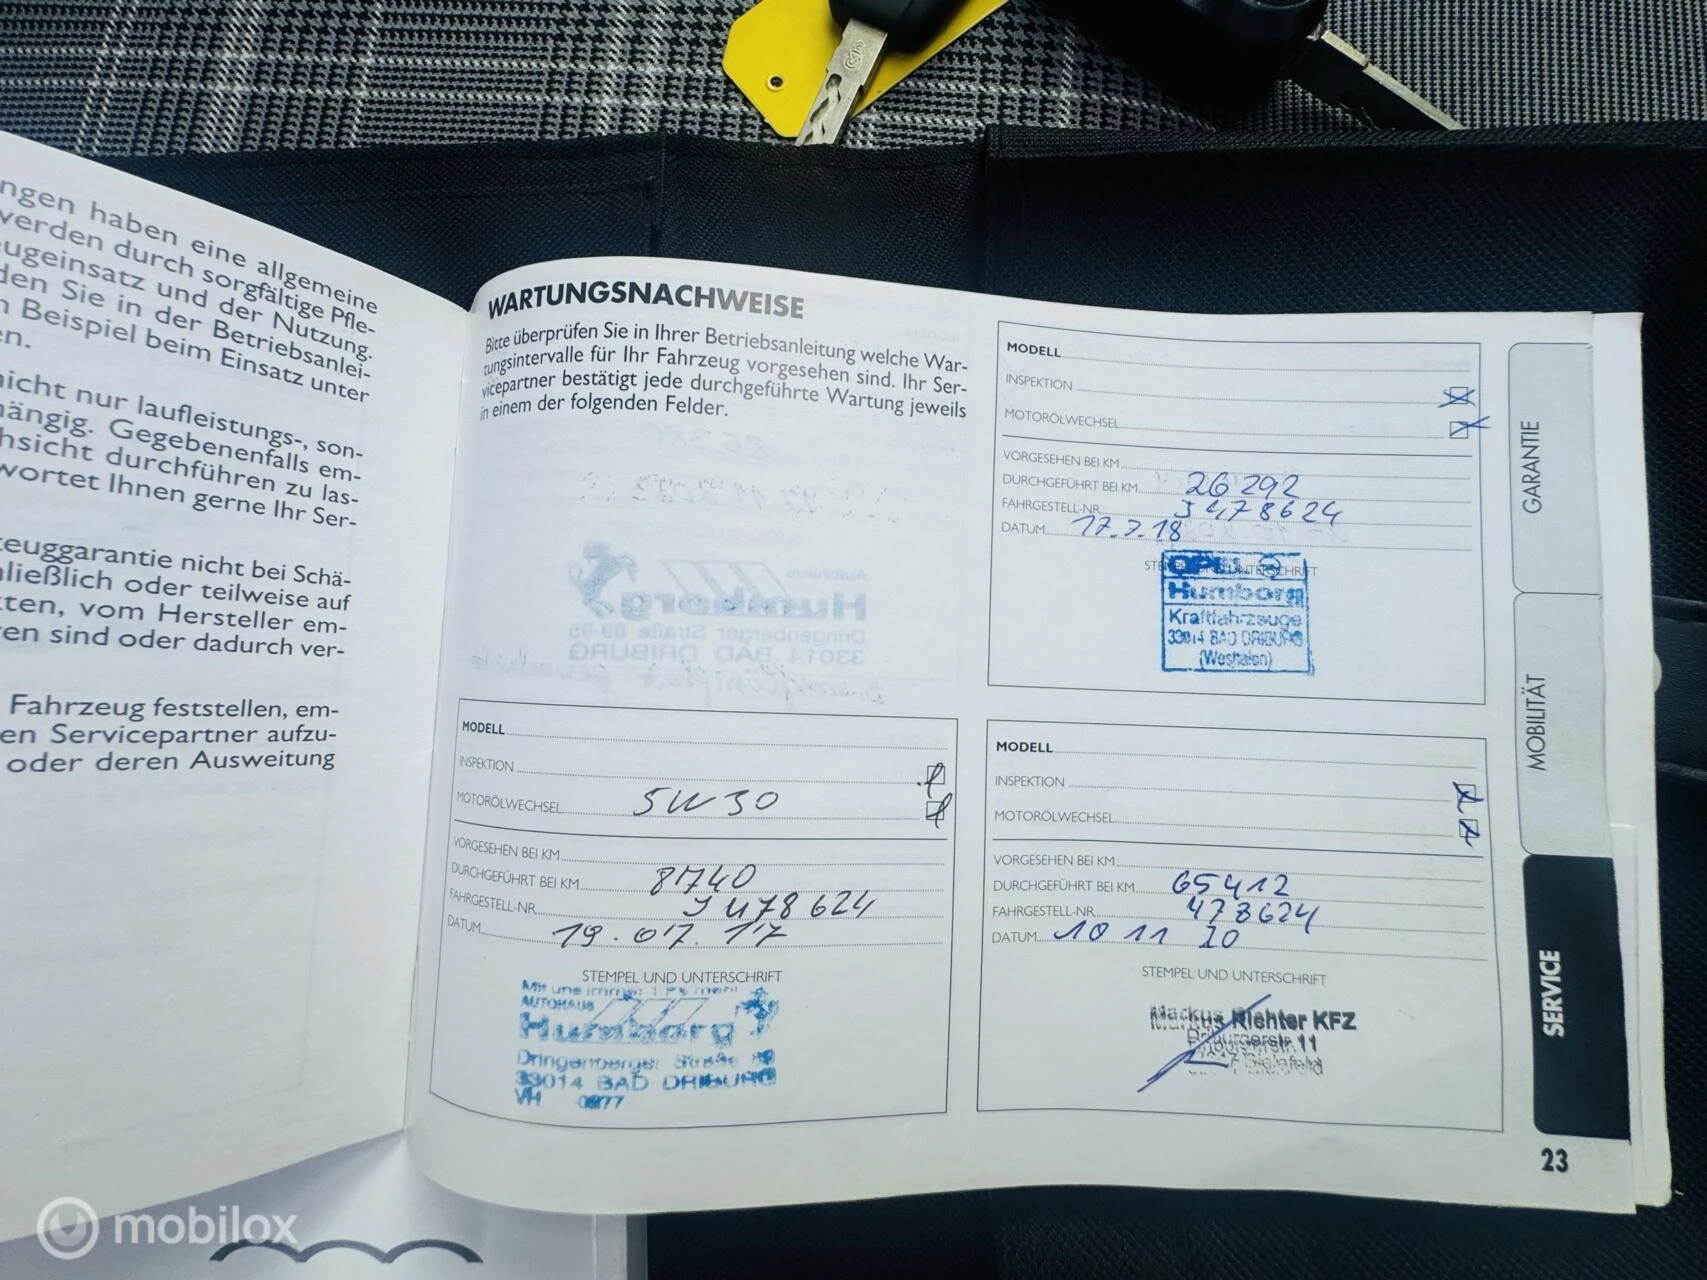 ngen haben eine allgemeine
werden durch sorgfältige Pfle-
eugeinsatz und der Nutzung.
den Sie in der Betriebsanlei-
n Beispiel beim Einsatz unter
en.
nicht nur laufleistungs-, son-
hängig. Gegebenenfalls em-
hsicht durchführen zu las-
wortet Ihnen gerne Ihr Ser-
zeuggarantie nicht bei Schä-
hließlich oder teilweise auf
kten, vom Hersteller em-
ren sind oder dadurch ver-
Fahrzeug feststellen, em-
en Servicepartner aufzu-
oder deren Ausweitung
WARTUNGSNACHWEISE
Bitte überprüfen Sie in Ihrer Betriebsanleitung welche War-
tungsintervalle für Ihr Fahrzeug vorgesehen sind. Ihr Ser-
vicepartner bestätigt jede durchgeführte Wartung jeweils
in einem der folgenden Felder.
MODELL
INSPEKTION
MOTORÖLWECHSEL 5W30
VORGESEHEN BEI KM
DURCHGEFÜHRT BEI KM 8740
FAHRGESTELL-NR. J478624
DATUM 19.07.17
STEMPEL UND UNTERSCHRIFT
Mit uns immer 1 PS mehr
AUTOHAUS
Humborg
Dringenberger Straße
33014 BAD DRIBURG
VH
MODELL
INSPEKTION
MOTORÖLWECHSEL
VORGESEHEN BEI KM
DURCHGEFÜHRT BEI KM 26292
FAHRGESTELL-NR. J478624
DATUM 17.7.18
STEMPEL UND UNTERSCHRIFT
OPEL
Humborg
Kraftfahrzeuge
33014 BAD DRIBURG
(Westfalen)
MODELL
INSPEKTION
MOTORÖLWECHSEL
VORGESEHEN BEI KM
DURCHGEFÜHRT BEI KM 65412
FAHRGESTELL-NR. 478624
DATUM 10 11 20
STEMPEL UND UNTERSCHRIFT
Markus Richter KFZ
Driburgerstr. 11
Bielefeld
GARANTIE
MOBILITÄT
SERVICE
23
mobilox